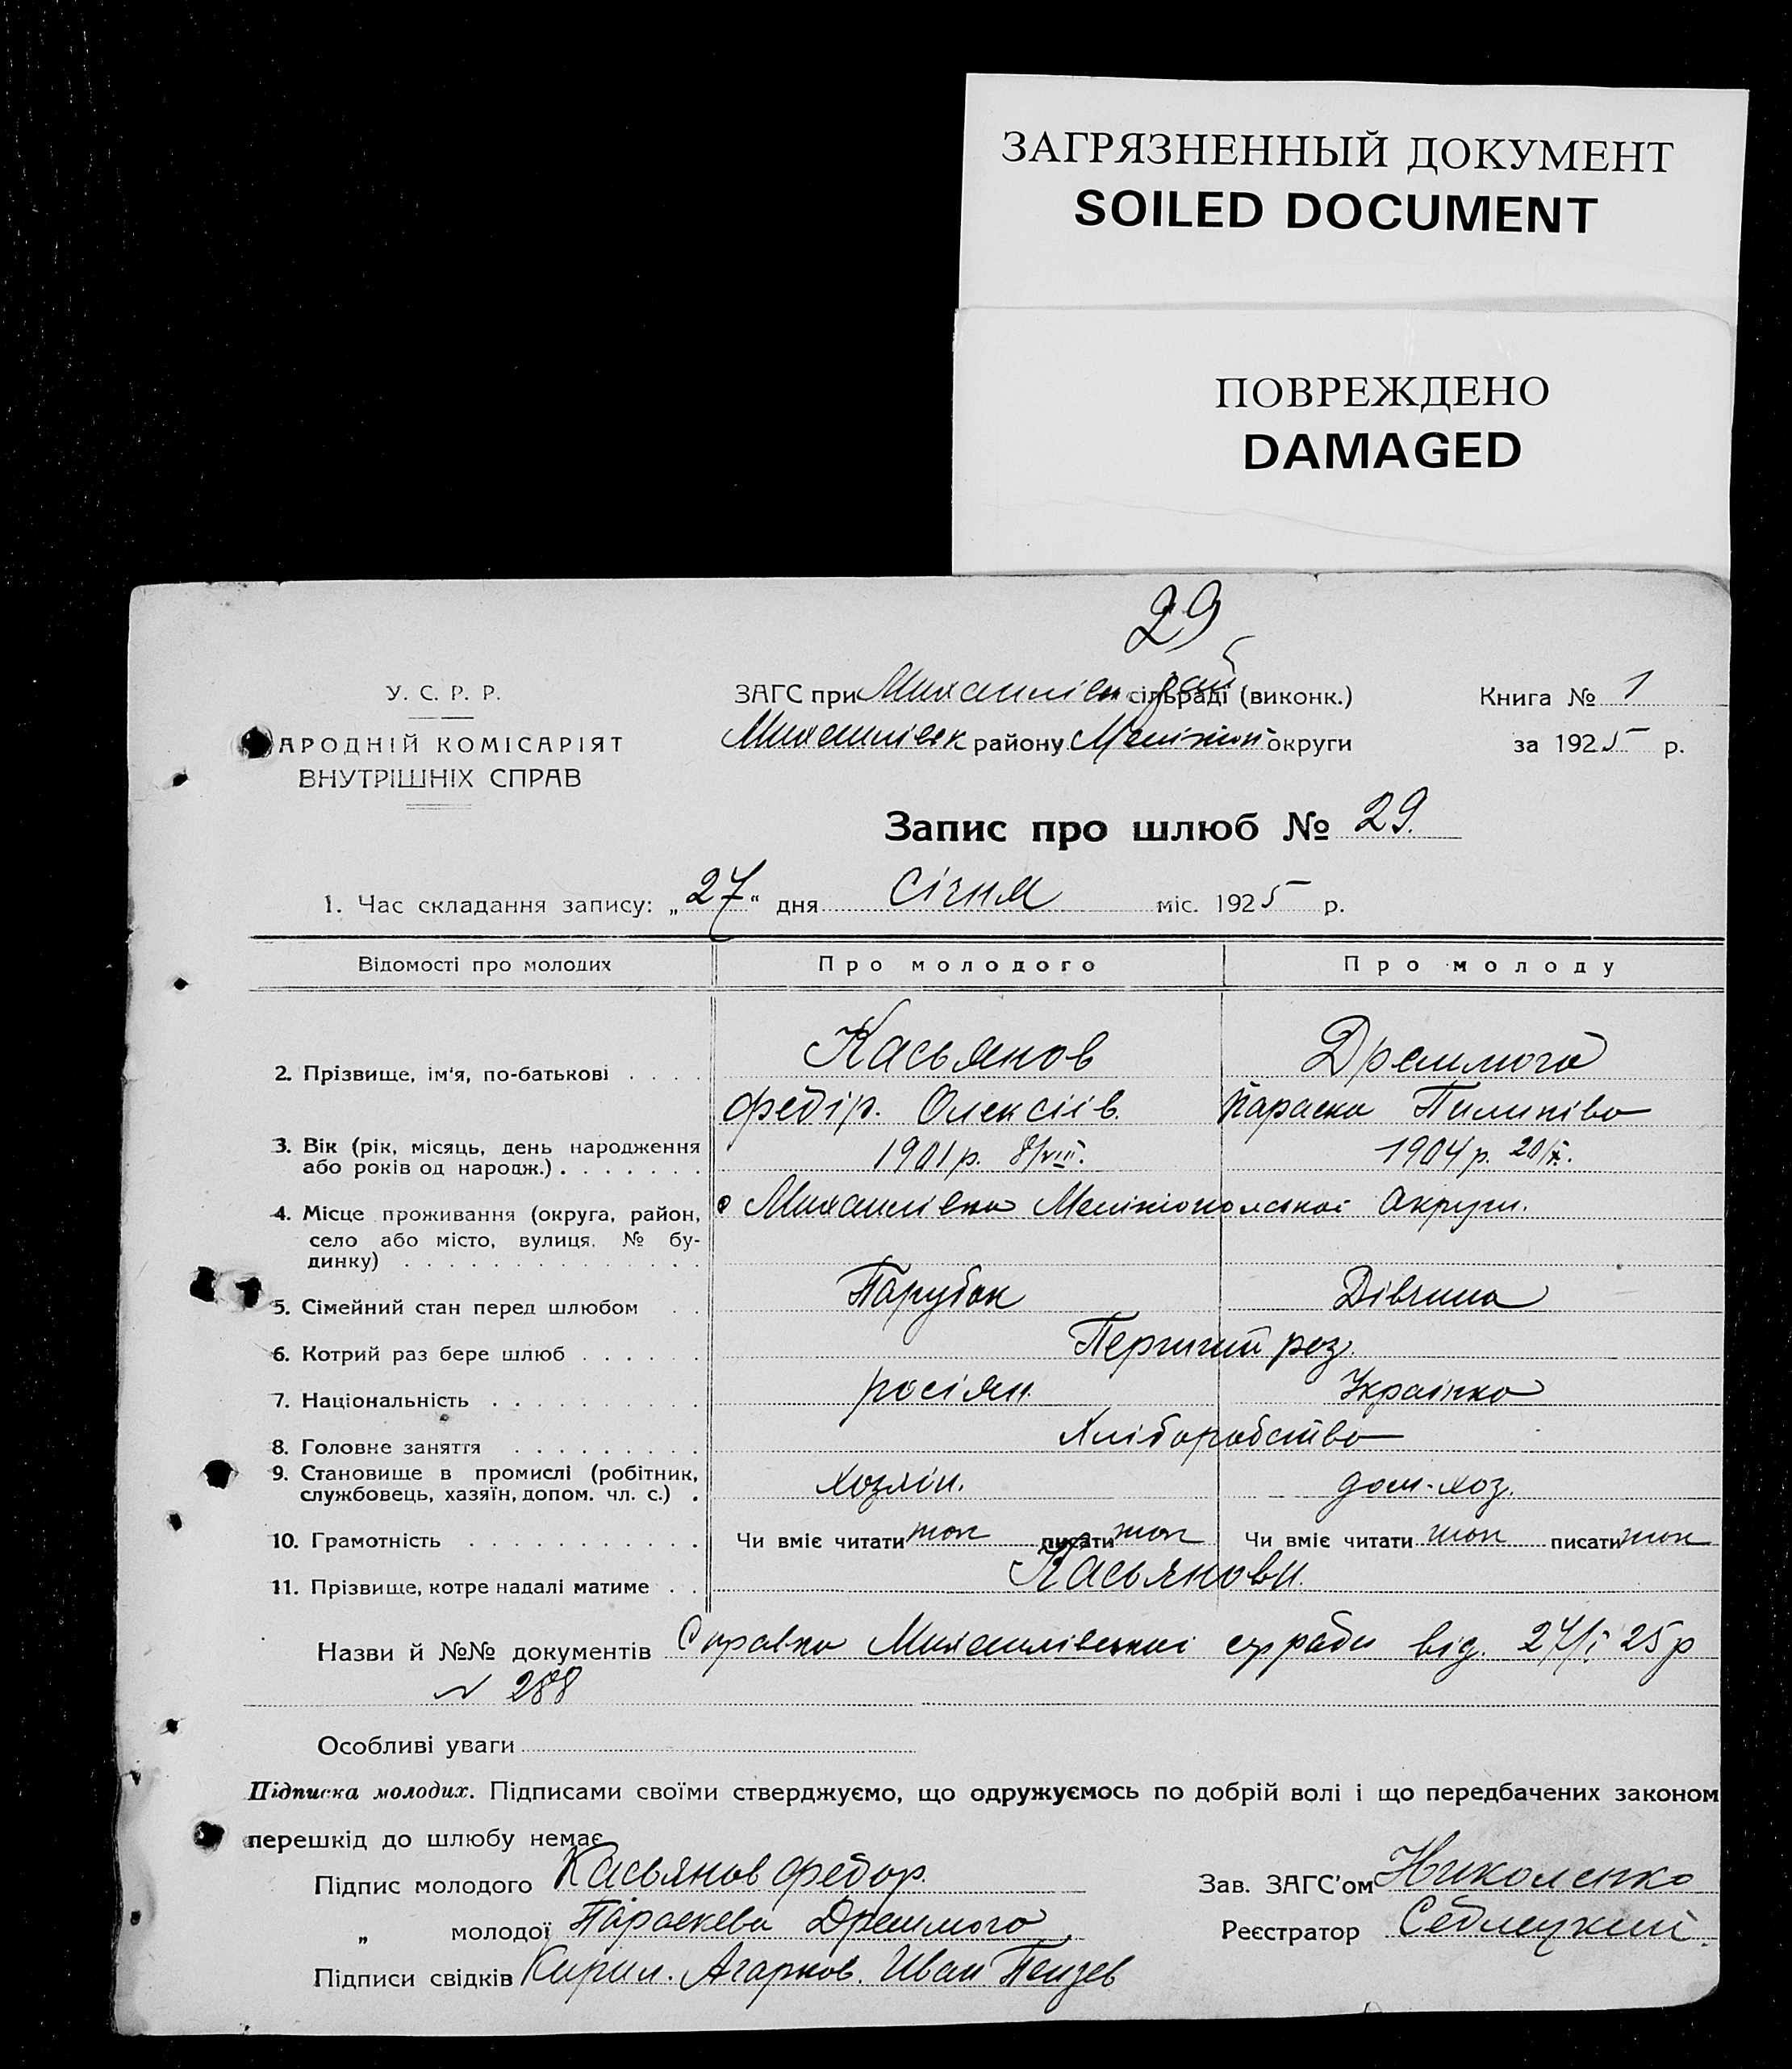 ЗАГРЯЗНЕННЫЙ ДОКУМЕНТ
SOILED DOCUMENT
ПОВРЕЖДЕНО
DAMAGED
29
У. С. Р. Р.
АРОДНІЙ КОМІСАРІЯТ
ВНУТРІШНІХ СПРАВ
ЗАГС при Михайлівськ сільраді (виконк.)
Михайлівськ району Меліт округи
Книга № 1
за 1925 р.
Запис про шлюб № 29.
1. Час складання запису: „27“ дня січня міс. 1925 р.
Відомості про молодих Про молодого Про молоду
2. Прізвище, ім'я, по-батькові Касьянов Дреммога
Федір. Олексіїв. Параска Пилипівна
3. Вік (рік, місяць, день народження або років од народж.) 1901 р. 8/VIII. 1904 р. 20/X.
4. Місце проживання (округа, район, село або місто, вулиця, № будинку) с Михайлівка Мелітопольської Округи.
5. Сімейний стан перед шлюбом Парубок Дівчина
6. Котрий раз бере шлюб Перший раз
7. Національність росіян. Українка
8. Головне заняття Хліборобство
9. Становище в промислі (робітник, службовець, хазяїн, допом. чл. с.) хозяїн. дом-хоз.
10. Грамотність Чи вміє читати так писати так Чи вміє читати так писати так
11. Прізвище, котре надалі матиме Касьянови.
Назви й №№ документів Справка Михайлівської с/ради від. 27/I 25 р
№ 288
Особливі уваги
Підписка молодих. Підписами своїми стверджуємо, що одружуємось по добрій волі і що передбачених законом
перешкід до шлюбу немає
Підпис молодого Касьянов Федор.
„ молодої Параскева
Підписи свідків Кирил. Агарков. Иван
Зав. ЗАГС'ом Николенко
Реєстратор Седлецкий.